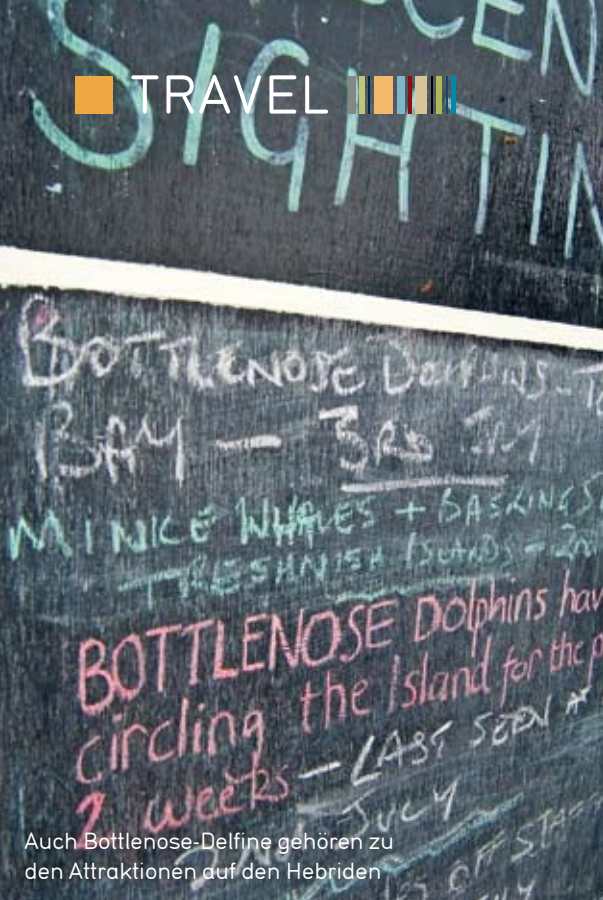 CEN
TRAVEL
SIGHTIN
BOTTLENOSE DOLPHINS - To
BAY – 3RD JULY
MINKE WHALES + BASKING S
TRESHNISH ISLANDS – 2n
BOTTLENOSE Dolphins hav
circling the Island for the p
2 weeks – LAST SEEN AT
2ND JULY
OFF STAFF
Auch Bottlenose-Delfine gehören zu
den Attraktionen auf den Hebriden